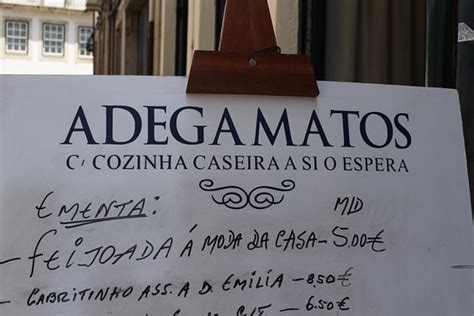 ADEGA MATOS
C/ COZINHA CASEIRA A SI O ESPERA
EMENTA: MD
- FEIJOADA Á MODA DA CASA - 5.00€
- CABRITINHO ASS. A D. EMILIA - 8,50€
6.50€